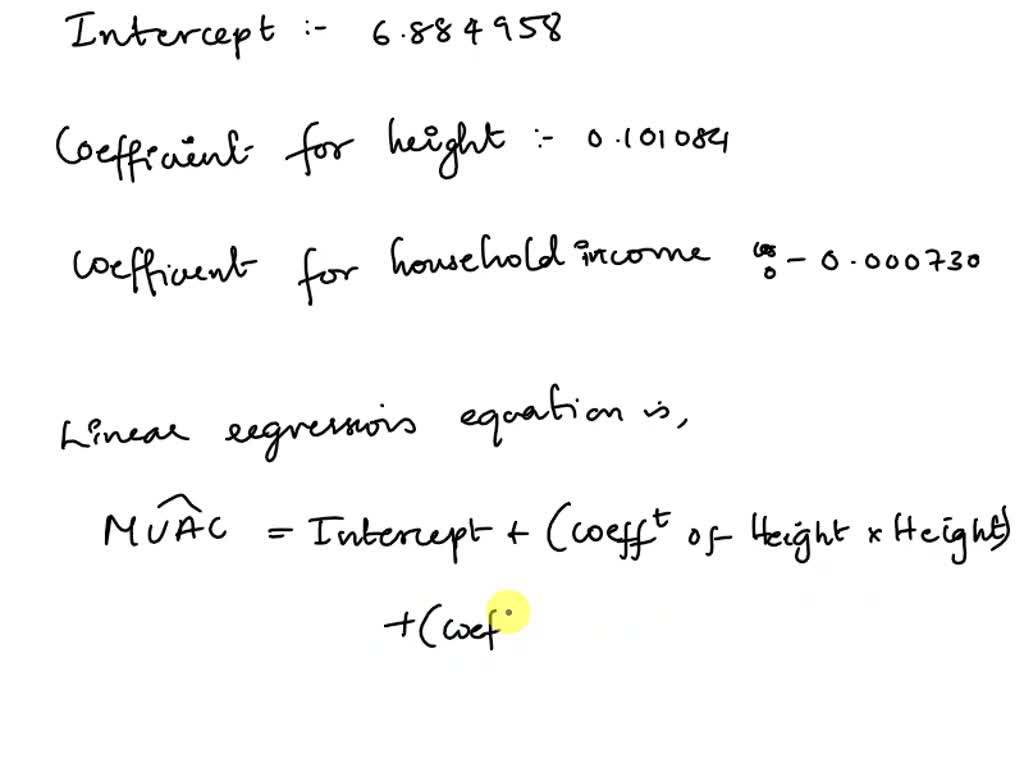 Intercept :- 6.884958
Coefficient for height :- 0.101084
Coefficient for household income :- 0.000730
Linear regression equation is,
MUAC = Intercept + (coeffᵗ of Height × Height)
+ (coef